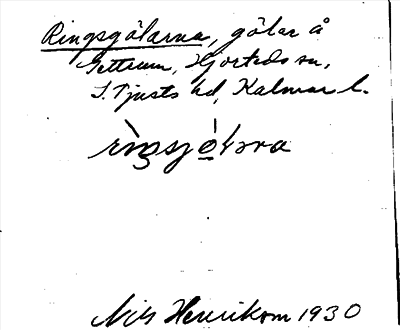 Ringsgölarna, gölar å
Gettrum, Hjorteds sn,
S. Tjusts hd, Kalmar l.
rìŋsjǿlara
Nils Henrikson 1930